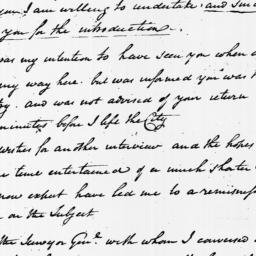 you I am willing to undertake, and sin
you for the introduction.
was my intention to have seen you when
my way here. but was informed you was
try. and was not advised of your return
minutes before I left the City
wishes for another interview and the hopes
time entertained of a much shorter
now expect have led me to a remissness
on the Subject
the Survyor Genl. with whom I conversed